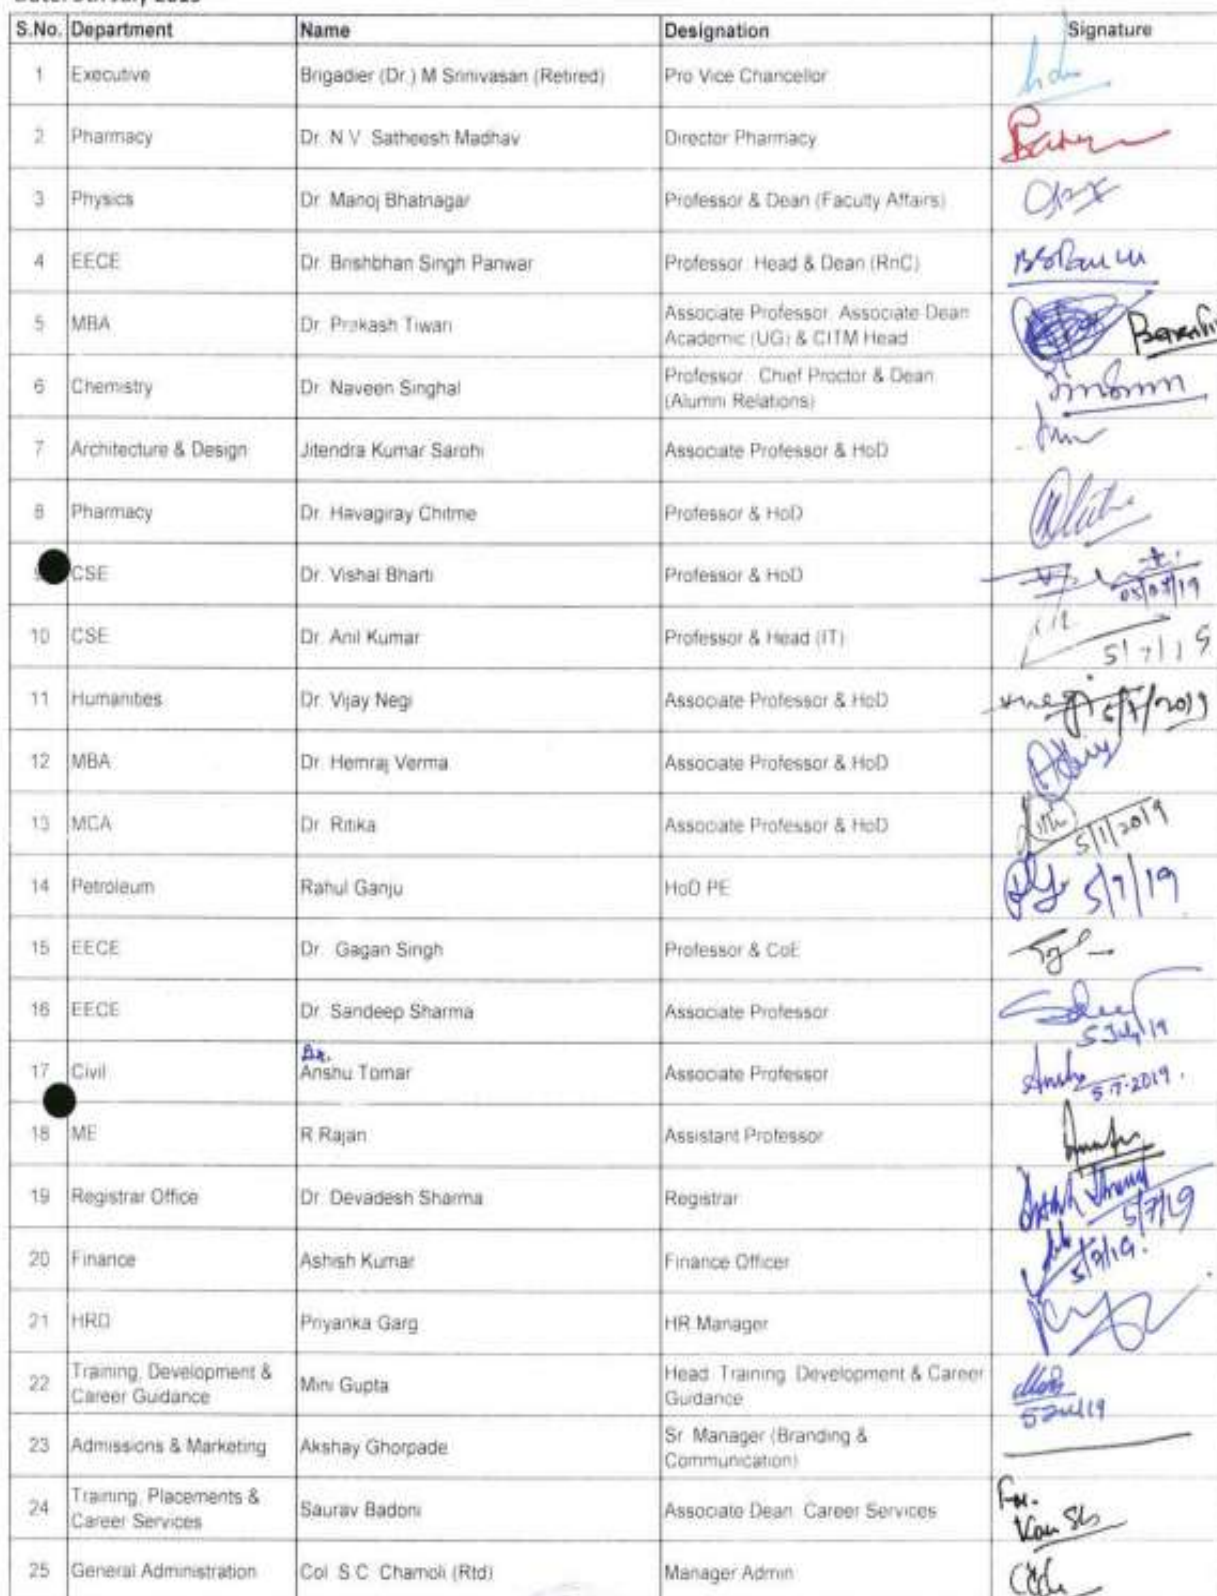 S.No. Department Name Designation Signature
1 Executive Brigadier (Dr.) M Srinivasan (Retired) Pro Vice Chancellor
2 Pharmacy Dr. N V Satheesh Madhav Director Pharmacy
3 Physics Dr. Manoj Bhatnagar Professor & Dean (Faculty Affairs)
4 EECE Dr. Brishbhan Singh Panwar Professor Head & Dean (RnC)
5 MBA Dr. Prakash Tiwari Associate Professor Associate Dean
Academic (UG) & CITM Head
6 Chemistry Dr. Naveen Singhal Professor Chief Proctor & Dean
(Alumni Relations)
7 Architecture & Design Jitendra Kumar Sarohi Associate Professor & HoD
8 Pharmacy Dr. Havagiray Chitme Professor & HoD
9 CSE Dr. Vishal Bharti Professor & HoD
05/07/19
10 CSE Dr. Anil Kumar Professor & Head (IT)
5/7/19
11 Humanities Dr. Vijay Negi Associate Professor & HoD
5/7/2019
12 MBA Dr. Hemraj Verma Associate Professor & HoD
13 MCA Dr. Ritika Associate Professor & HoD
14 Petroleum Rahul Ganju HoD PE 5/7/19
15 EECE Dr. Gagan Singh Professor & CoE
16 EECE Dr. Sandeep Sharma Associate Professor
5 July 19
Dr.
17 Civil Anshu Tomar Associate Professor Anshu
5.7.2019.
18 ME R Rajan Assistant Professor
19 Registrar Office Dr. Devadesh Sharma Registrar
5/7/19
20 Finance Ashish Kumar Finance Officer
5/7/19.
21 HRD Priyanka Garg HR Manager
22 Training, Development &
Career Guidance Mini Gupta Head Training Development & Career
Guidance
23 Admissions & Marketing Akshay Ghorpade Sr. Manager (Branding &
Communication)
24 Training, Placements &
Career Services Saurav Badoni Associate Dean Career Services
For.
25 General Administration Col S.C. Chamoli (Rtd) Manager Admin